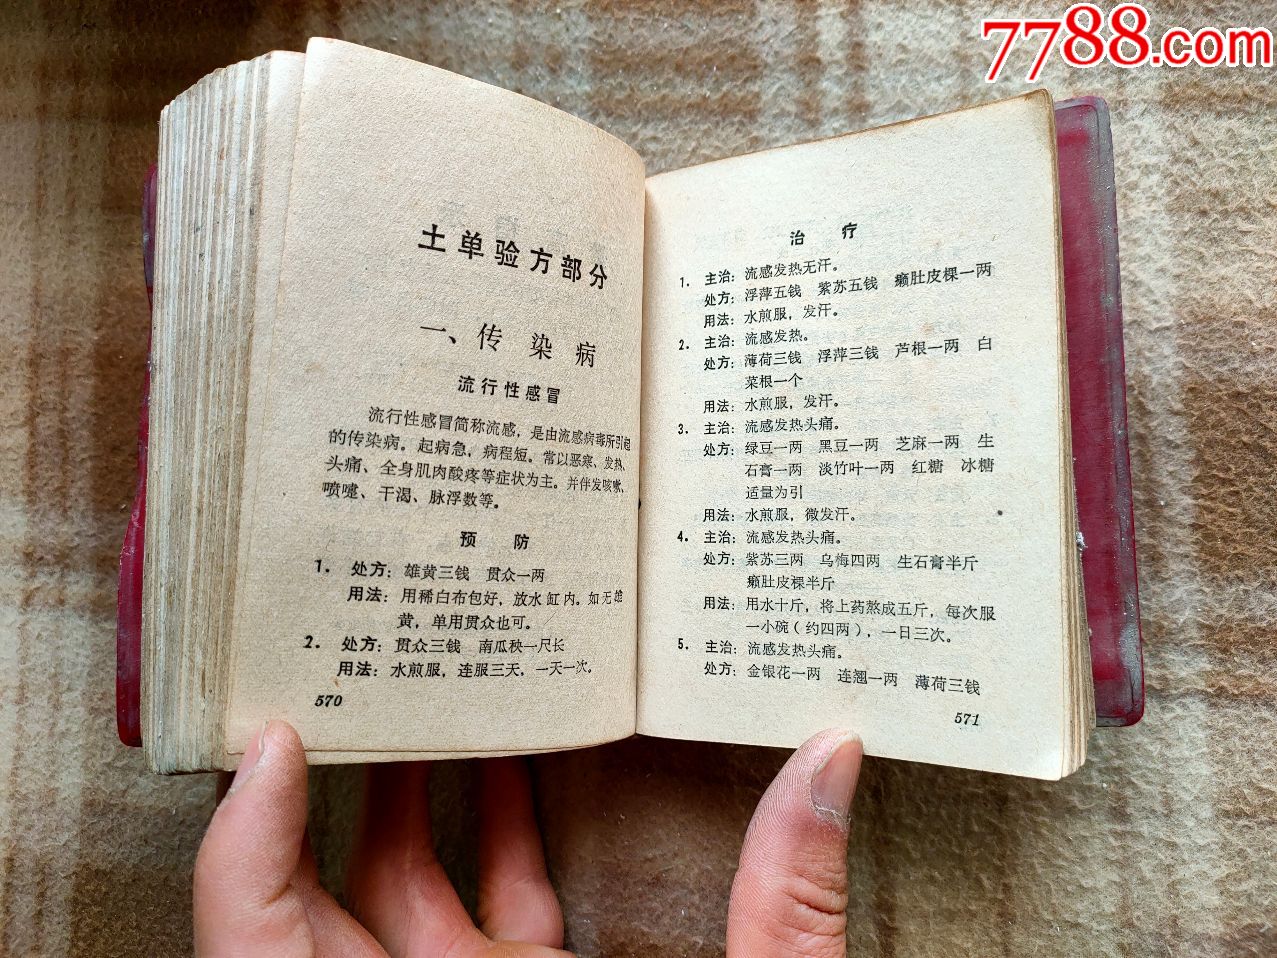 7788.com
土单验方部分
一、传染病
流行性感冒
流行性感冒简称流感，是由流感病毒所引起
的传染病。起病急，病程短。常以恶寒、发热、
头痛、全身肌肉酸疼等症状为主。并伴发咳嗽、
喷嚏、干渴、脉浮数等。
预 防
1. 处方：雄黄三钱 贯众一两
用法：用稀白布包好，放水缸内。如无雄
黄，单用贯众也可。
2. 处方：贯众三钱 南瓜秧一尺长
用法：水煎服，连服三天，一天一次。
570
治 疗
1. 主治：流感发热无汗。
处方：浮萍五钱 紫苏五钱 癞肚皮棵一两
用法：水煎服，发汗。
2. 主治：流感发热。
处方：薄荷三钱 浮萍三钱 芦根一两 白
菜根一个
用法：水煎服，发汗。
3. 主治：流感发热头痛。
处方：绿豆一两 黑豆一两 芝麻一两 生
石膏一两 淡竹叶一两 红糖 冰糖
适量为引
用法：水煎服，微发汗。
4. 主治：流感发热头痛。
处方：紫苏三两 乌梅四两 生石膏半斤
癞肚皮棵半斤
用法：用水十斤，将上药熬成五斤，每次服
一小碗（约四两），一日三次。
5. 主治：流感发热头痛。
处方：金银花一两 连翘一两 薄荷三钱
571